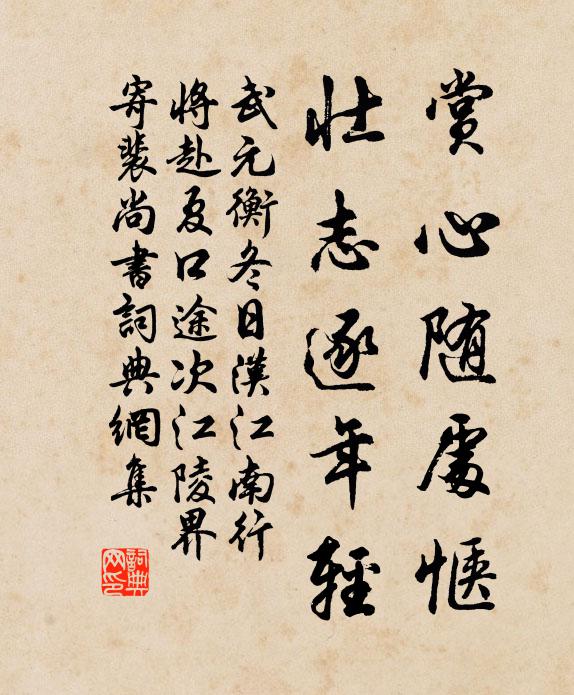 赏心随處惬
壮志逐年輕
武元衡冬日漢江南行
将赴夏口途次江陵界
寄裴尚書詞典網集
詞典
网印